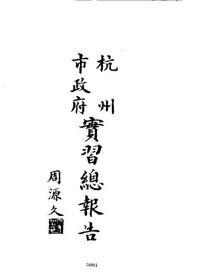 杭州
市政府
實習總報告
周源久